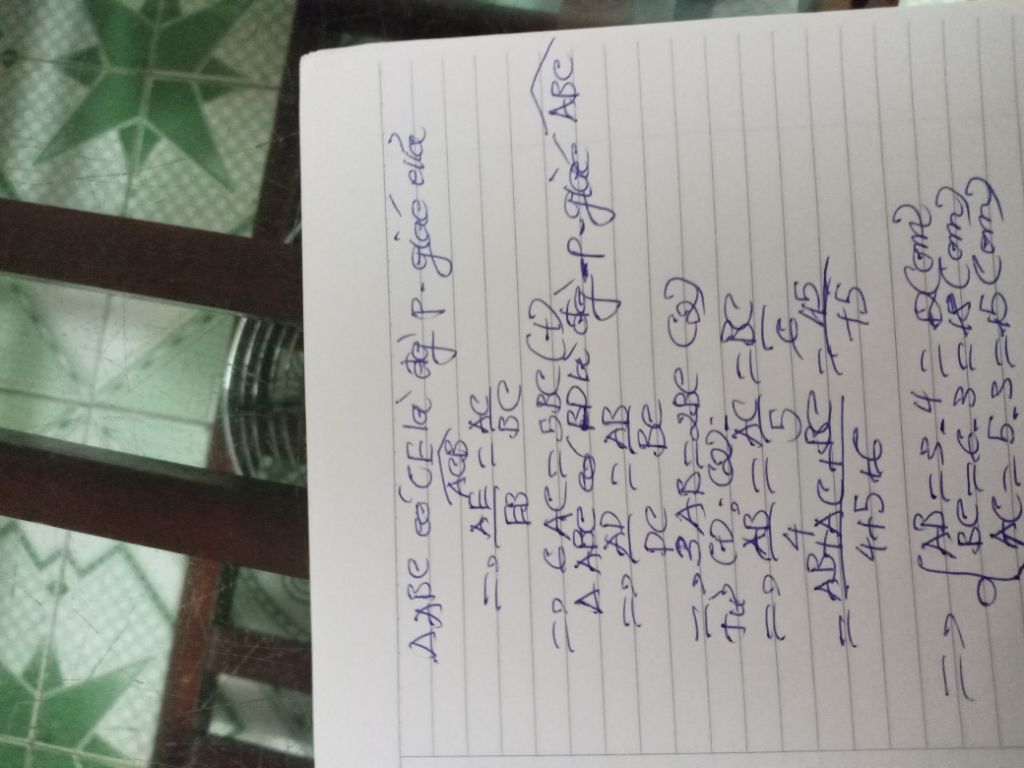 ΔABC có CE là đg P-giác của
ACB
=> AE/EB = AC/BC
=> 6AC = 5BC (1)
Δ ABC có BD là đg-P-giác ABC
=> AD/DC = AB/BC
=> 3AB = 2BC (2)
Từ (1); (2):
=> AB/4 = AC/5 = BC/6
= AB+AC+BC/4+5+6 = 45/15
=> { AB = 3.4 = 12(cm)
BC = 6.3 = 18(cm)
AC = 5.3 = 15(cm)